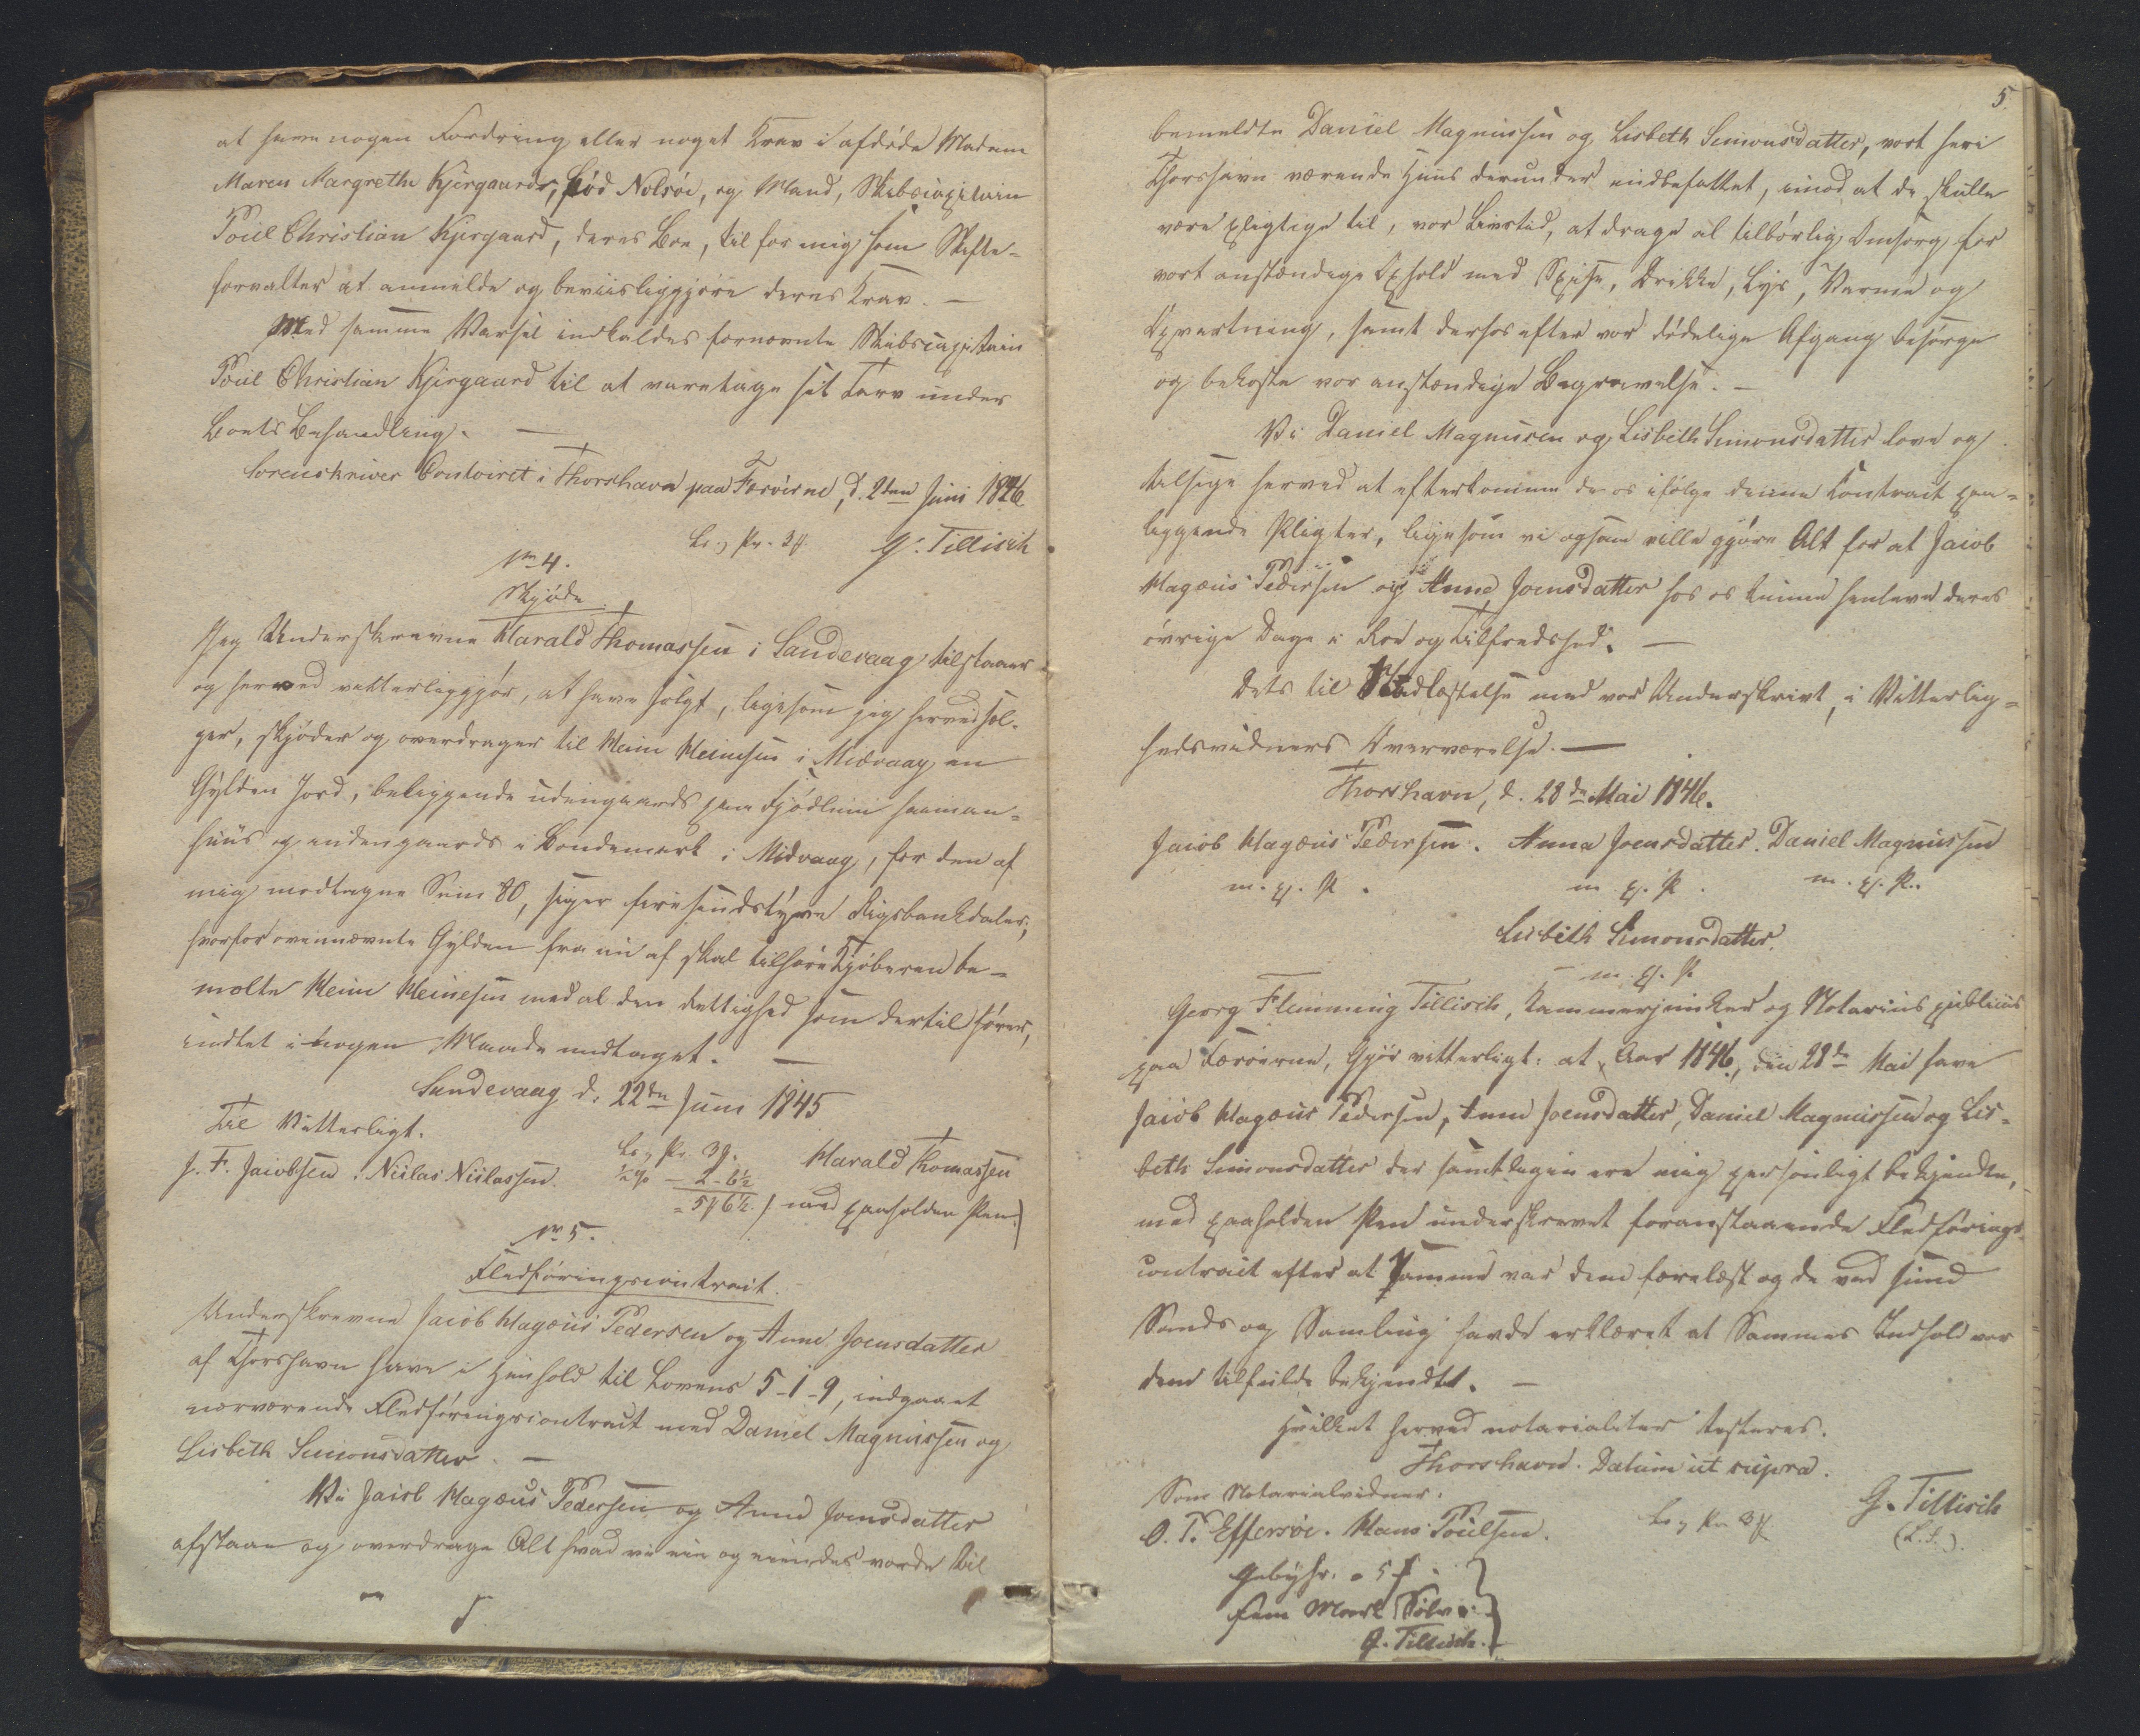 at have nogen Fordring eller noget Krav i afdøde Madam
Maren Margrethe Kjergaards, fød Nolsøe, og Mand, Skibscapitain
Poul Christian Kjergaard, deres Boe, til for mig som Skifte-
forvalter at anmelde og beviisliggjøre deres Krav. —
Med samme Varsel indkaldes fornævnte Skibscapitain
Poul Christian Kjergaard til at varetage sit Tarv under
Boets Behandling. —
Sorenskriver Contoiret i Thorshavn paa Færøerne, d. 2den Juni 1846
G. Tillisch
No 4.
Skjøde.
Jeg Underskrevne Harald Thomassen i Sandevaag tilstaaer
og herved vitterliggjør, at have solgt, ligesom jeg herved sæl-
ger, skjøder og overdrager til Heine Heinesen i Midvaag en
Gylden Jord, beliggende udengaards paa Fjødlum haiman-
huus og indengaards i Bondemark i Midvaag, for den af
mig modtagne Sum 80, siger firesindstyve Rigsbankdaler,
hvorfor ovennævnte Gylden fra nu af skal tilhøre Kjøberen be-
mældte Heine Heinesen med al den Rettighed som dertil hører,
indtet i nogen Maade undtaget. —
Sandevaag d. 22de Juni 1845
Til Vitterlighed.
Harald Thomassen
J. F. Jacobsen. Niclas Niclassen.
= 5 # 6½. / med paaholden Pen /
No 5.
Fledføringscontract.
Underskrevne Jacob Magnus Pedersen og Anne Joensdatter
af Thorshavn have i Henhold til Lovens 5-1-9, indgaaet
nærværende Fledføringscontract med Daniel Magnussen og
Lisbeth Simonsdatter. —
Vi Jacob Magnus Pedersen og Anne Joensdatter
afstaae og overdrage Alt hvad vi eie og eiendes vorde til
5
bemeldte Daniel Magnussen og Lisbeth Simonsdatter, vort heri
Thorshavn værende Huus derunder indbefattet, imod at de skulle
være pligtige til, vor Livstid, at drage al tilbørlig Omsorg for
vort anstændige Ophold med Spise, Drikke, Lys, Varme og
Opvartning, samt derhos efter vor dødelige Afgang besørge
og bekoste vor anstændige Begravelse. —
Vi Daniel Magnussen og Lisbeth Simonsdatter love og
tilsige herved at efterkomme de os ifølge denne Contract paa-
liggende Pligter, ligesom vi ogsaa ville gjøre Alt for at Jacob
Magnus Pedersen og Anne Joensdatter hos os kunne henleve deres
øvrige Dage i Roe og Tilfredshed. —
Dets til Stadfæstelse med vor Underskrivt, i Vitterlig-
hedsvidners Overværelse. —
Thorshavn, d. 28de Mai 1846.
Jacob Magnus Pedersen. Anna Joensdatter. Daniel Magnussen
m. p. P. m. p. P. m. p. P.
Lisbeth Simonsdatter.
m. p. P.
Georg Flemming Tillisch, Kammerjunker og Notarius publicus
paa Færøerne, Gjør vitterligt: at Aar 1846, den 28de Mai have
Jacob Magnus Pedersen, Anne Joensdatter, Daniel Magnussen og Lis-
beth Simonsdatter der samtlegen ere mig personligt bekjendte,
med paaholden Pen underskrevet foranstaaende Fledførings
contract efter at Samme var dem forelæst og de ved sund
Sands og Samling havde erklæret at Sammes Indhold var
dem tilfulde bekjendt. —
Hvilket herved notarialiter testeres.
Thorshavn. Datum ut supra.
Som Notarialvidner.
G. Tillisch
O. P. Effersøe. Hans Poulsen.
(L. S.)
Gebyhr. = 5 #
fem Mark Sølv.
G. Tillisch.